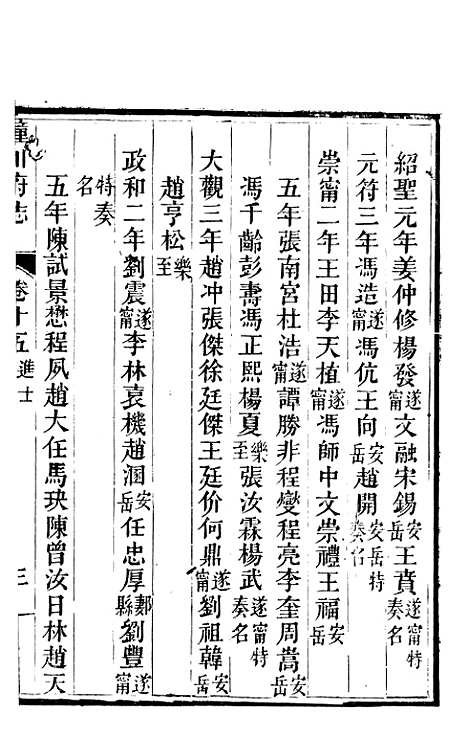 紹聖元年姜仲修楊發遂甯文融宋錫安岳王賁遂甯特奏名
元符三年馮造遂甯馮伉王向安岳趙開安岳特奏名
崇甯二年王田李天植遂甯馮師中文崇禮王福安岳
五年張南宮杜浩遂甯譚勝非程變程亮李奎周嵩安岳
馮千齡彭壽馮正熙楊夏樂至張汝霖楊武遂甯特奏名
大觀三年趙冲張傑徐廷傑王廷价何鼎遂甯劉祖韓安岳
趙亨松樂至
政和二年劉震遂甯李林袁機趙涸安岳任忠厚郪縣劉豐遂甯
特奏名
五年陳試景懋程夙趙大任馬玦陳曾汝日林趙天
潼川府志
卷十五
進士
三